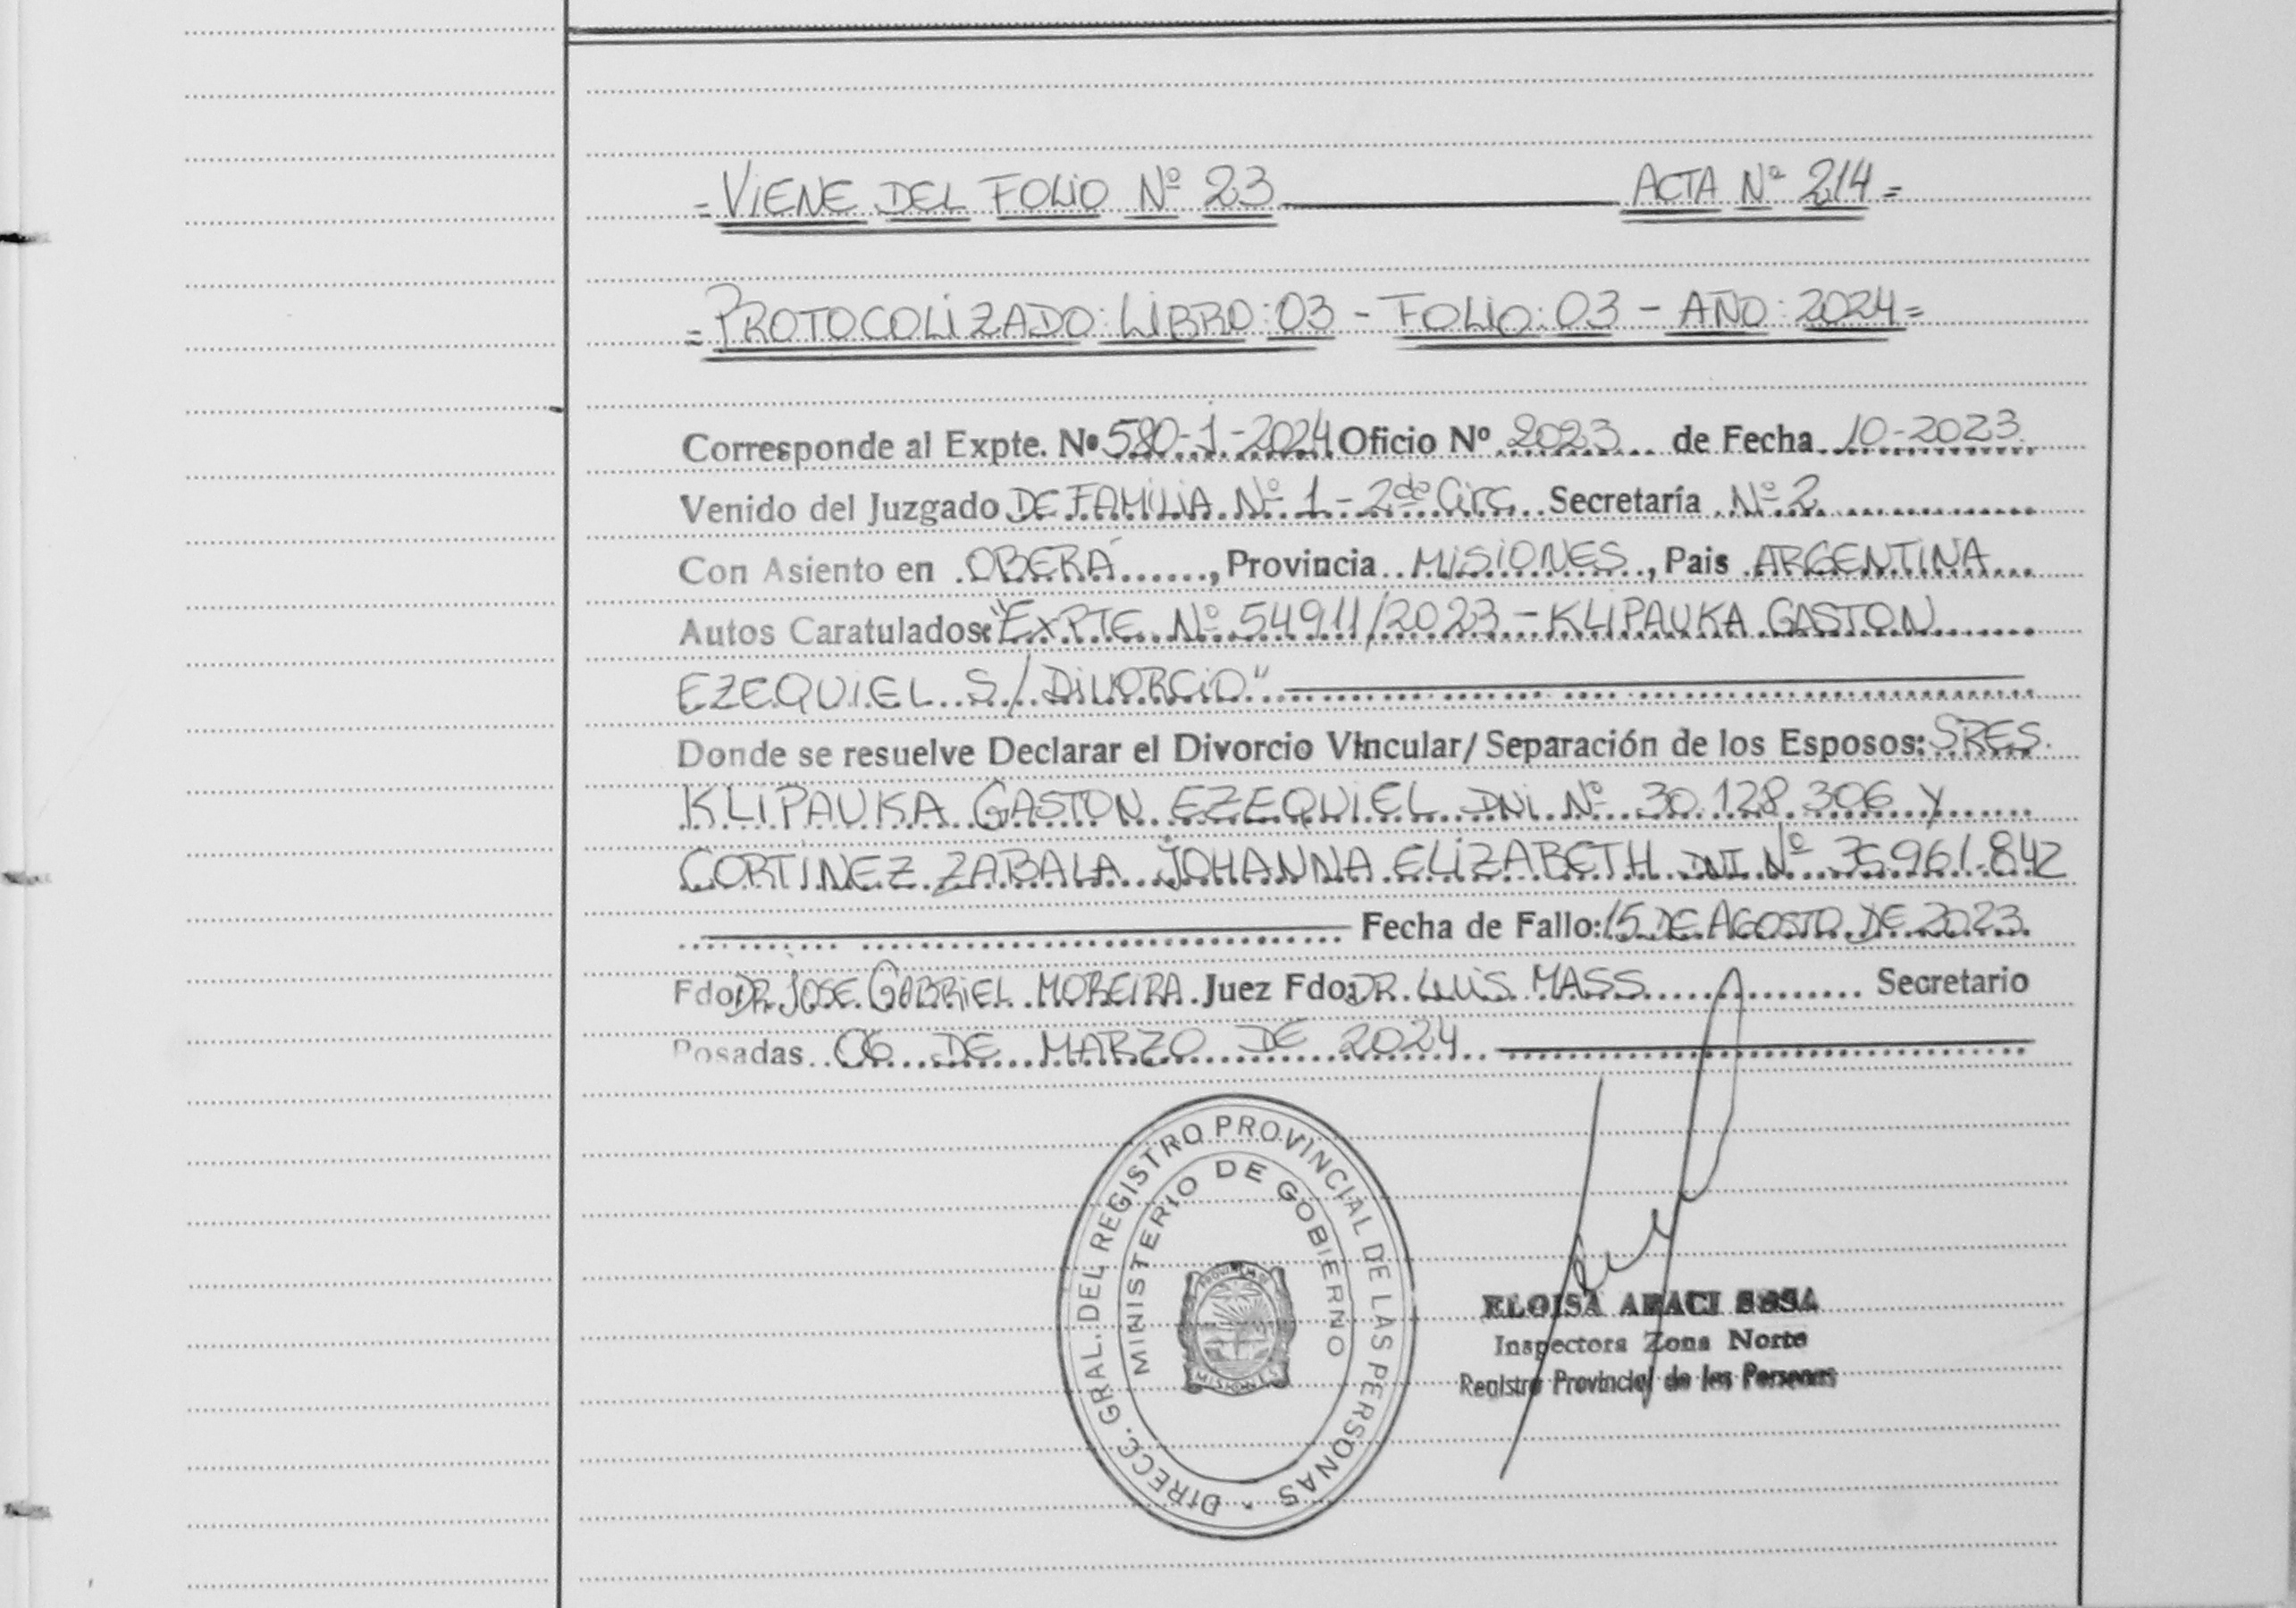 = VIENE DEL FOLIO Nº 23 ACTA Nº 214 =
= PROTOCOLIZADO: LIBRO: 03 - FOLIO: 03 - AÑO: 2024 =
Corresponde al Expte. Nº 580-1-2024 Oficio Nº 2023 de Fecha 10-2023
Venido del Juzgado DE FAMILIA Nº 1 - 2da Circ. Secretaría Nº 2
Con Asiento en OBERÁ, Provincia MISIONES, Pais ARGENTINA
Autos Caratulados: "EXPTE Nº 54911/2023 - KLIPAUKA GASTON
EZEQUIEL S/ DIVORCIO"
Donde se resuelve Declarar el Divorcio Vincular/ Separación de los Esposos: SRES.
KLIPAUKA GASTON EZEQUIEL DNI Nº 30.128.306 Y
CORTINEZ ZABALA JOHANNA ELIZABETH DNI Nº 35.961.842
Fecha de Fallo: 15 DE AGOSTO DE 2023
Fdo: DR. JOSE GABRIEL MOREIRA Juez Fdo: DR. LUIS MASS Secretario
Posadas 06 DE MARZO DE 2024
DIRECC. GRAL. DEL REGISTRO PROVINCIAL DE LAS PERSONAS
MINISTERIO DE GOBIERNO
MISIONES
ELOISA ARACI SOSA
Inspectora Zona Norte
Registro Provincial de las Personas